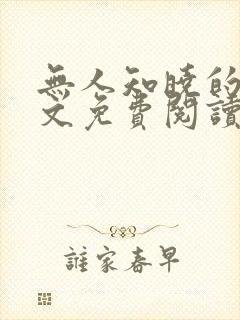 無人知曉的
文免費閱讀
誰家春早